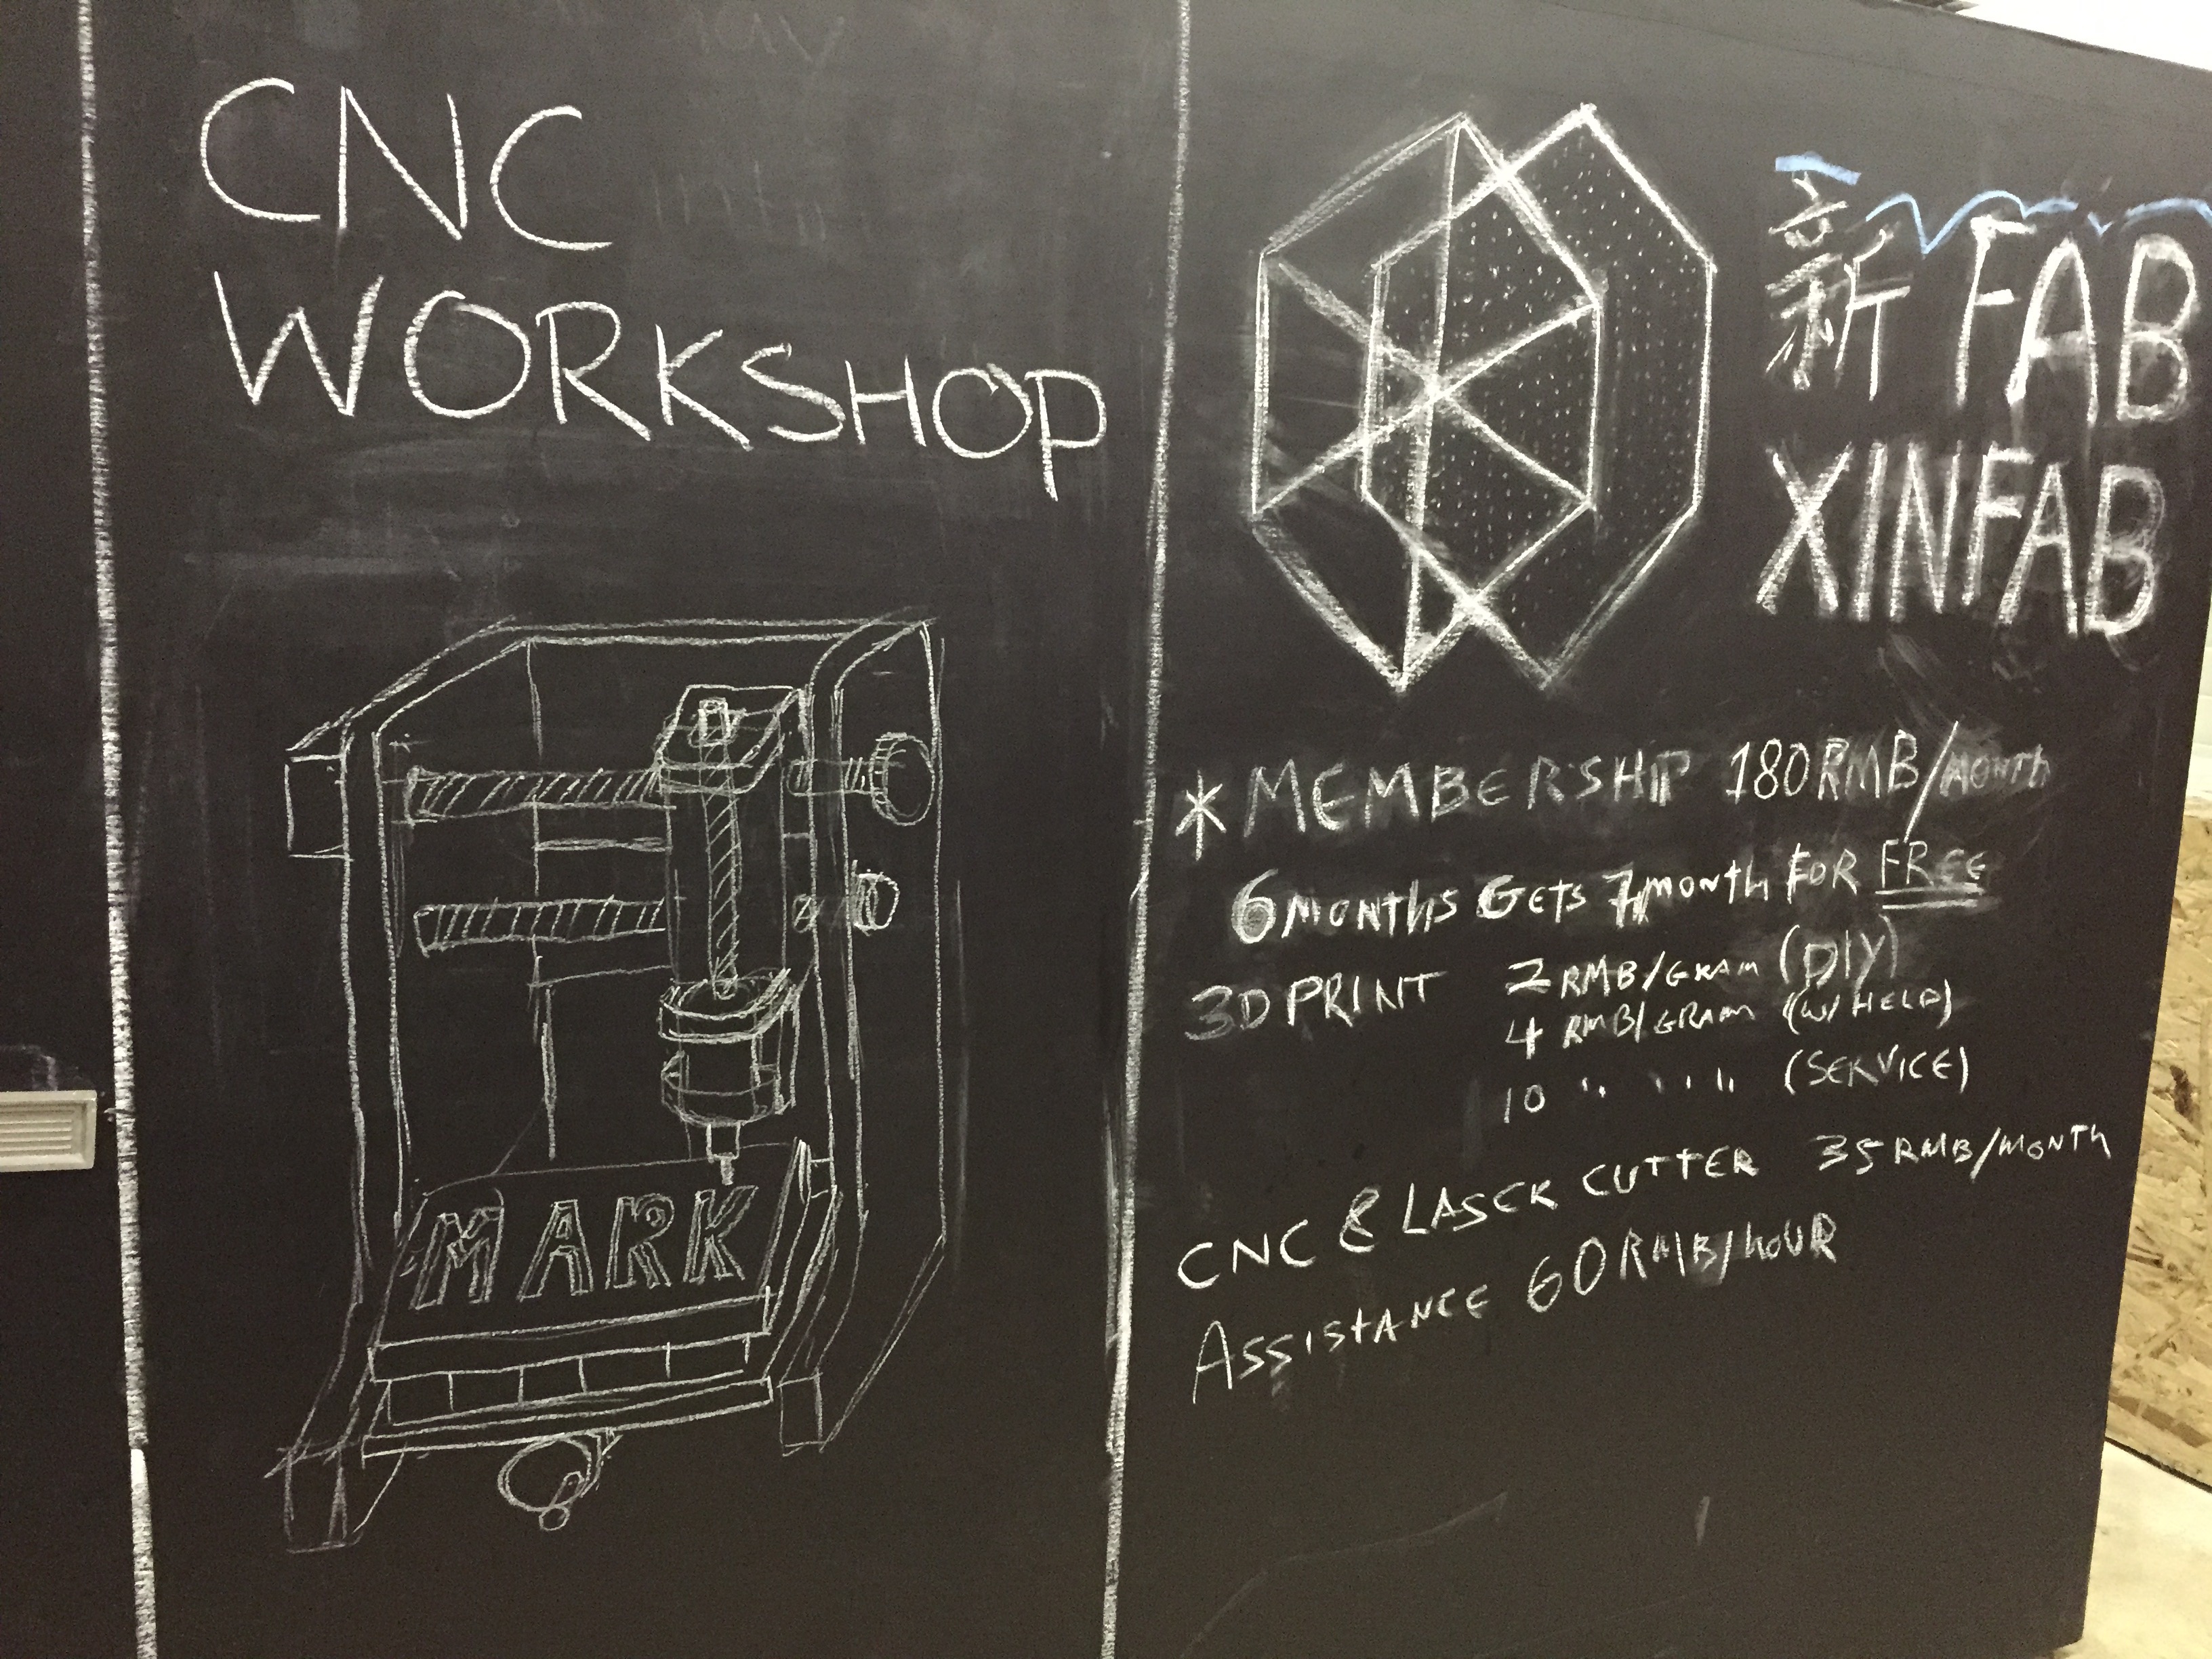 CNC
WORKSHOP
MARK
新 FAB
XINFAB
* MEMBERSHIP 180RMB/MONTH
6 MONTHS GETS 7 MONTH FOR FREE
3D PRINT 2 RMB/GRAM (DIY)
4 RMB/GRAM (W/ HELP)
10 " " (SERVICE)
CNC & LASER CUTTER 35 RMB/MONTH
ASSISTANCE 60 RMB/HOUR